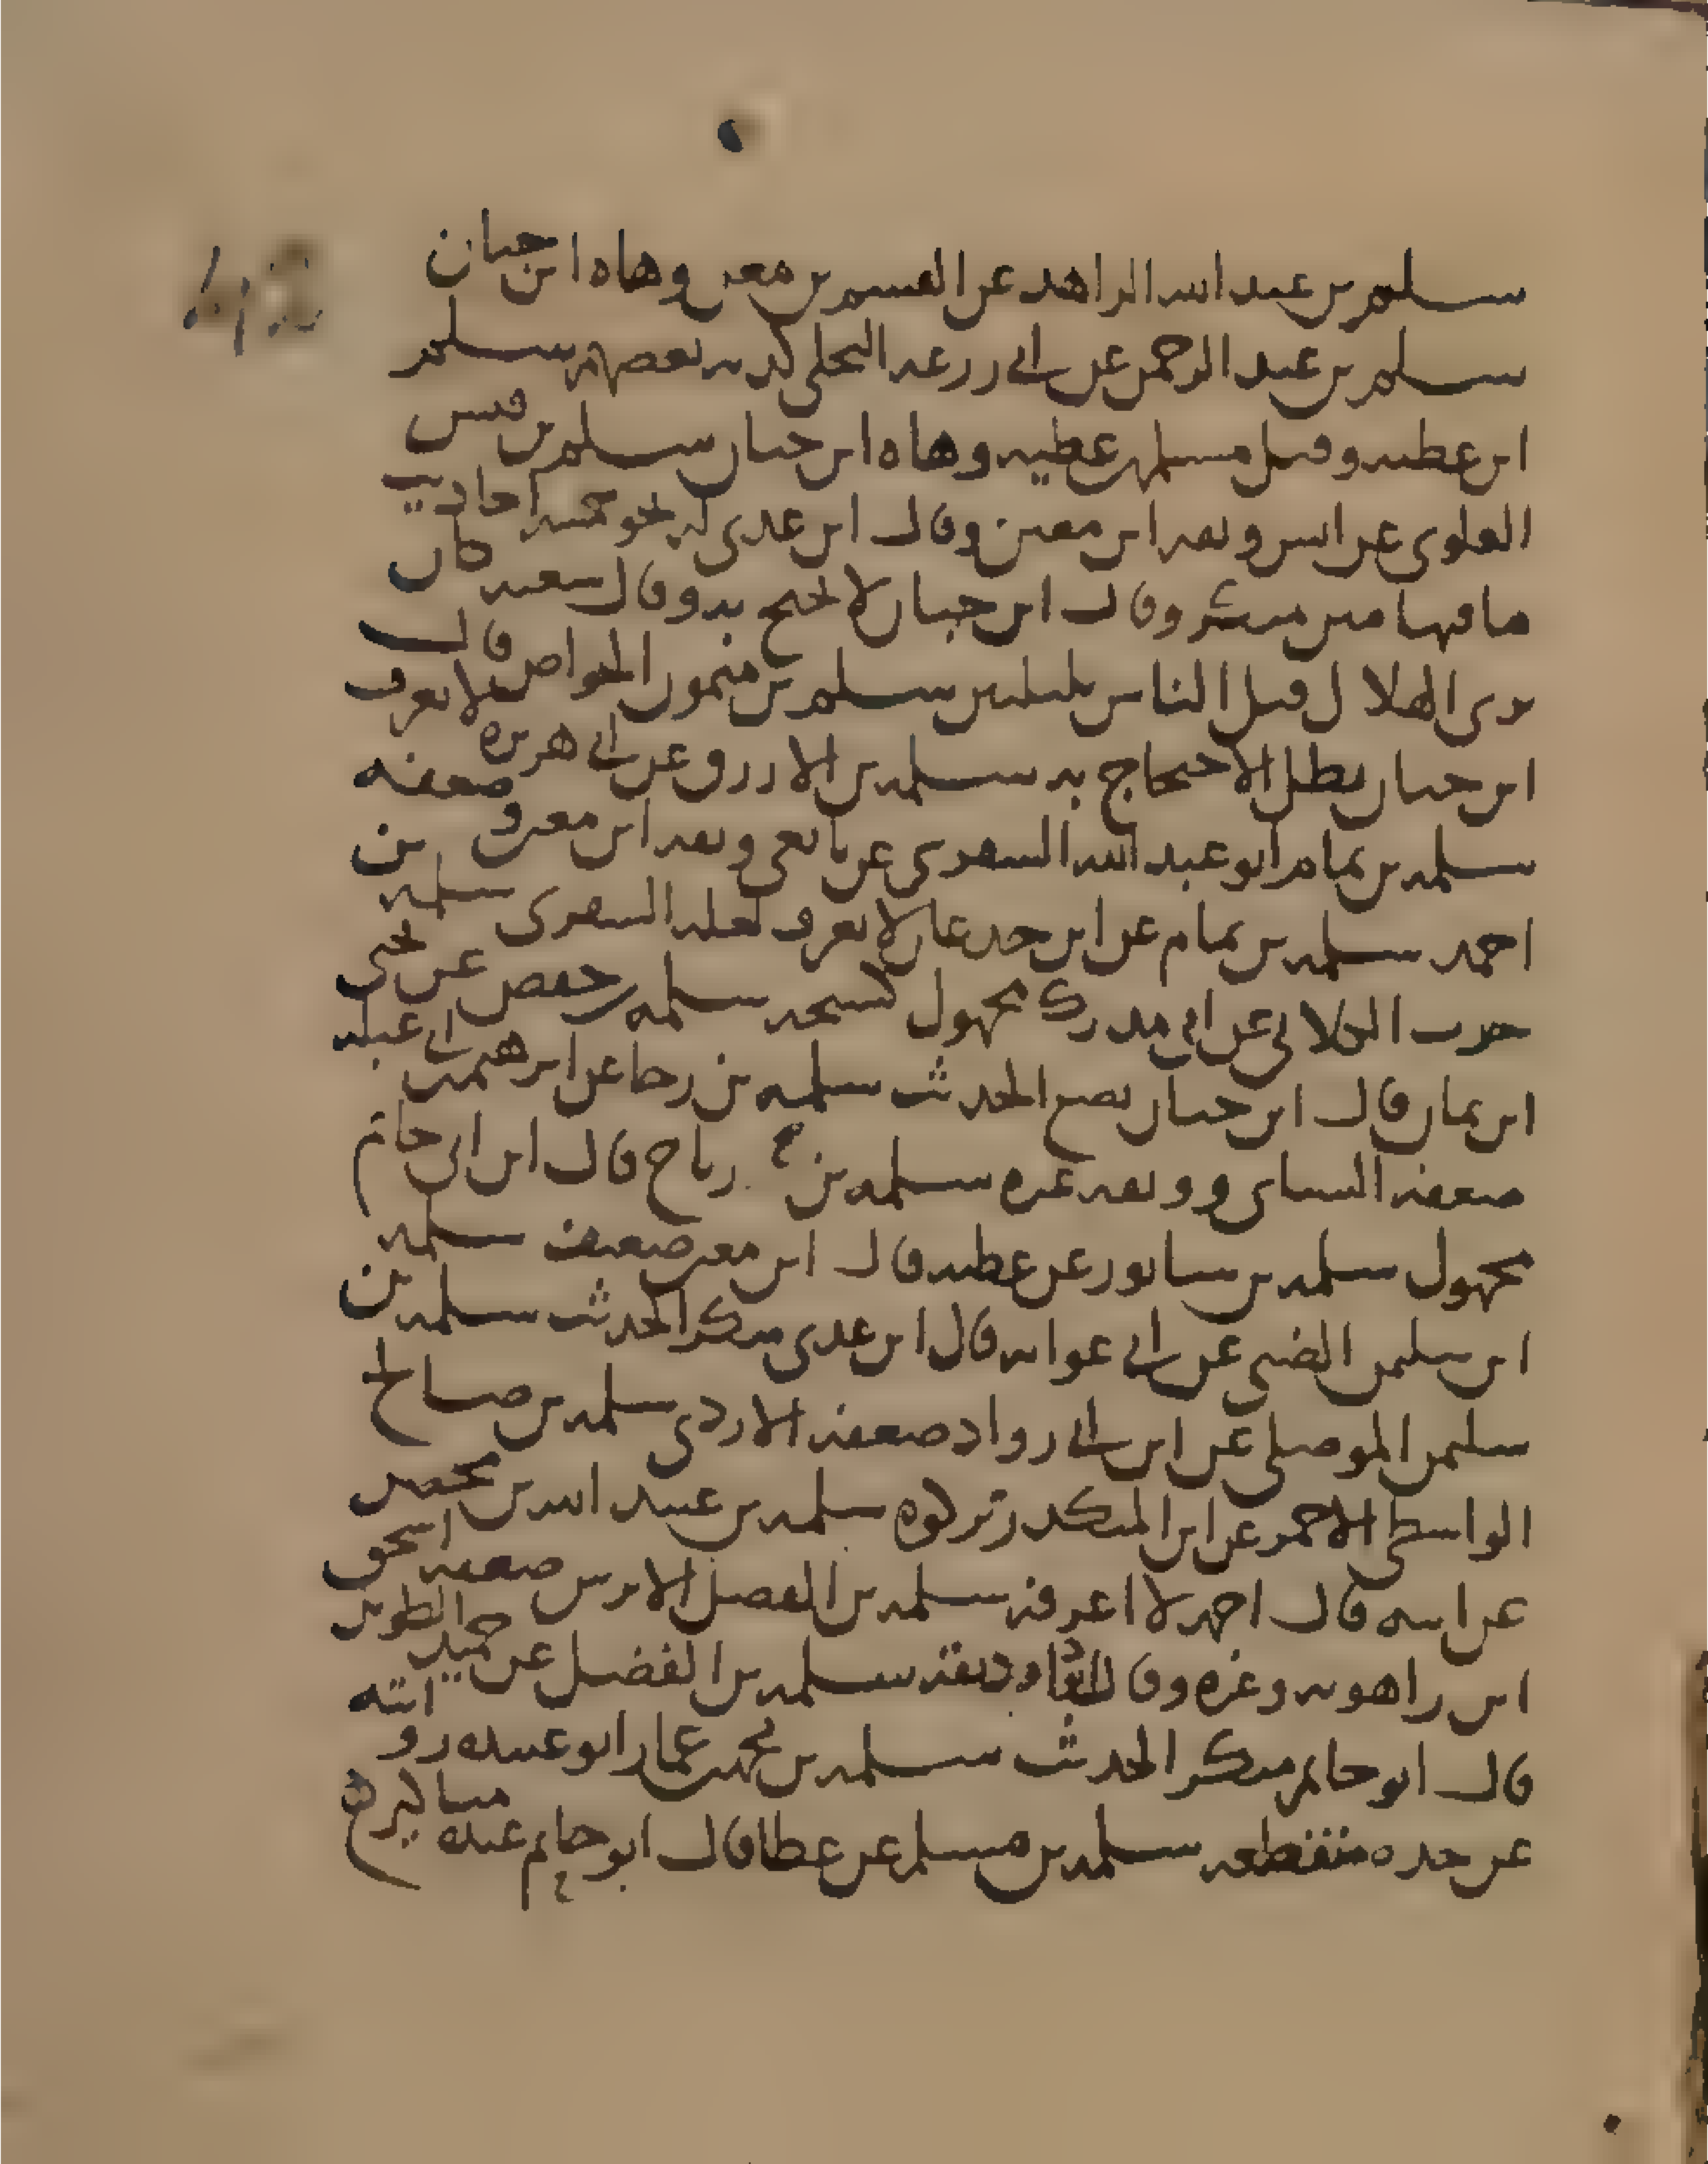 سلم بن عبد الله الزاهد عن القسم بن معن وهاه ابن حبان
سلم بن عبد الرحمن عن ابي زرعه البجلي لينه بعضهم سلم
ابن عطيه وقيل مسلم بن عطيه وهاه ابن حبان سلم بن قيس
العلوي عن انس وثقه ابن معين وقال ابن عدي له نحو خمسه احاديث
ما فيها متن منكر وقال ابن حبان لا يحتج به وقال شعبه كان
يرى الهلال قبل الناس بليلتين سلم بن ميمون الخواص قال
ابن حبان بطل الاحتجاج به سلمه بن الازرق عن ابي هريره لا يعرف
سلمه بن تمام ابو عبد الله الشقري عن تابعي وثقه ابن معين وضعفه
احمد سلمه بن تمام عن ابن جدعان لا يعرف لعله الشقري سلمه بن
حرب الكلابي عن ابي مدرك مجهول كشيخه سلمه بن حفص عن يحيى
ابن يمان قال ابن حبان يضع الحديث سلمه بن رجا عن ابرهيم بن ابي عبله
ضعفه النسائي ووثقه غيره سلمه بن رباح قال ابن ابي حاتم
مجهول سلمه بن سابور عن عطيه قال ابن معين ضعيف سلمه
ابن سليمن الضبي عن ابي عوانه قال ابن عدي منكر الحديث سلمه بن
سليمن الموصلي عن ابن ابي رواد ضعفه الازدي سلمه بن صالح
الواسطي الاحمر عن ابن المنكدر تركوه سلمه بن عبيد الله بن محصن
عن ابيه قال احمد لا اعرفه سلمه بن الفضل الابرش ضعفه اسحق
ابن راهويه وغيره وقال ابو داود ثقه سلمه بن الفضل عن حميد الطويل
قال ابو حاتم منكر الحديث سلمه بن محمد بن عمار ابو عبيده روايته
عن جده منقطعه سلمه بن مسلم عن عطا قال ابو حاتم عنده مناكير